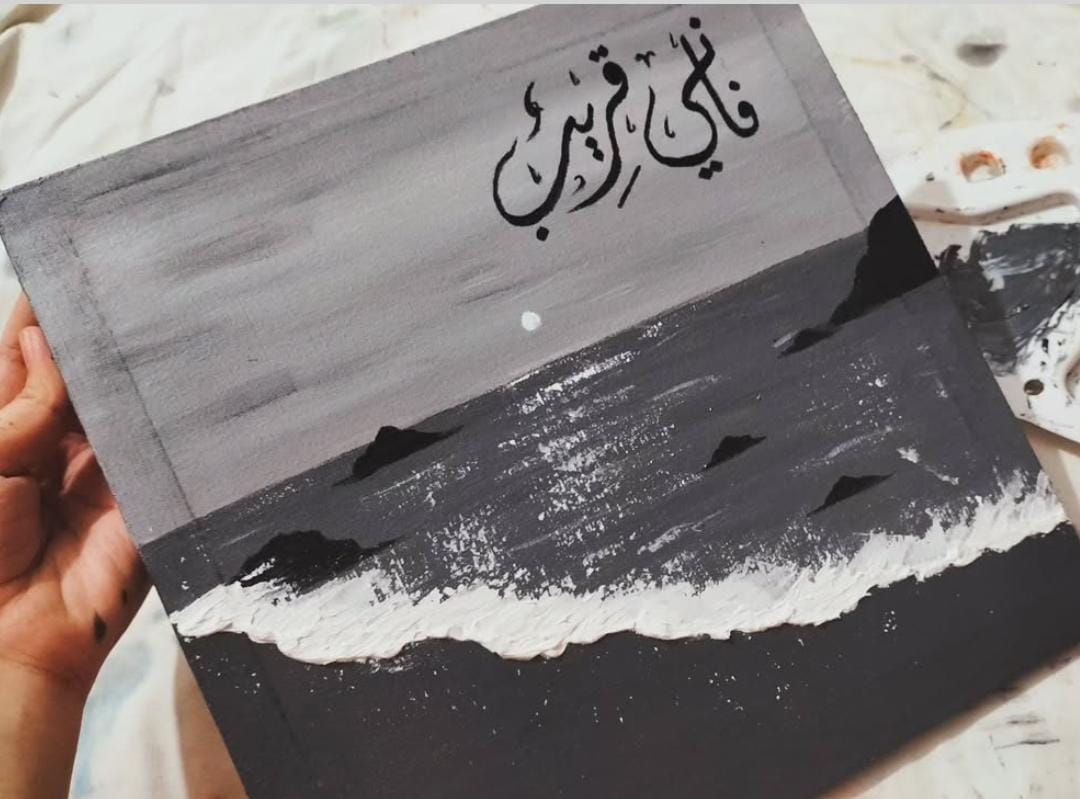 فإني قريب